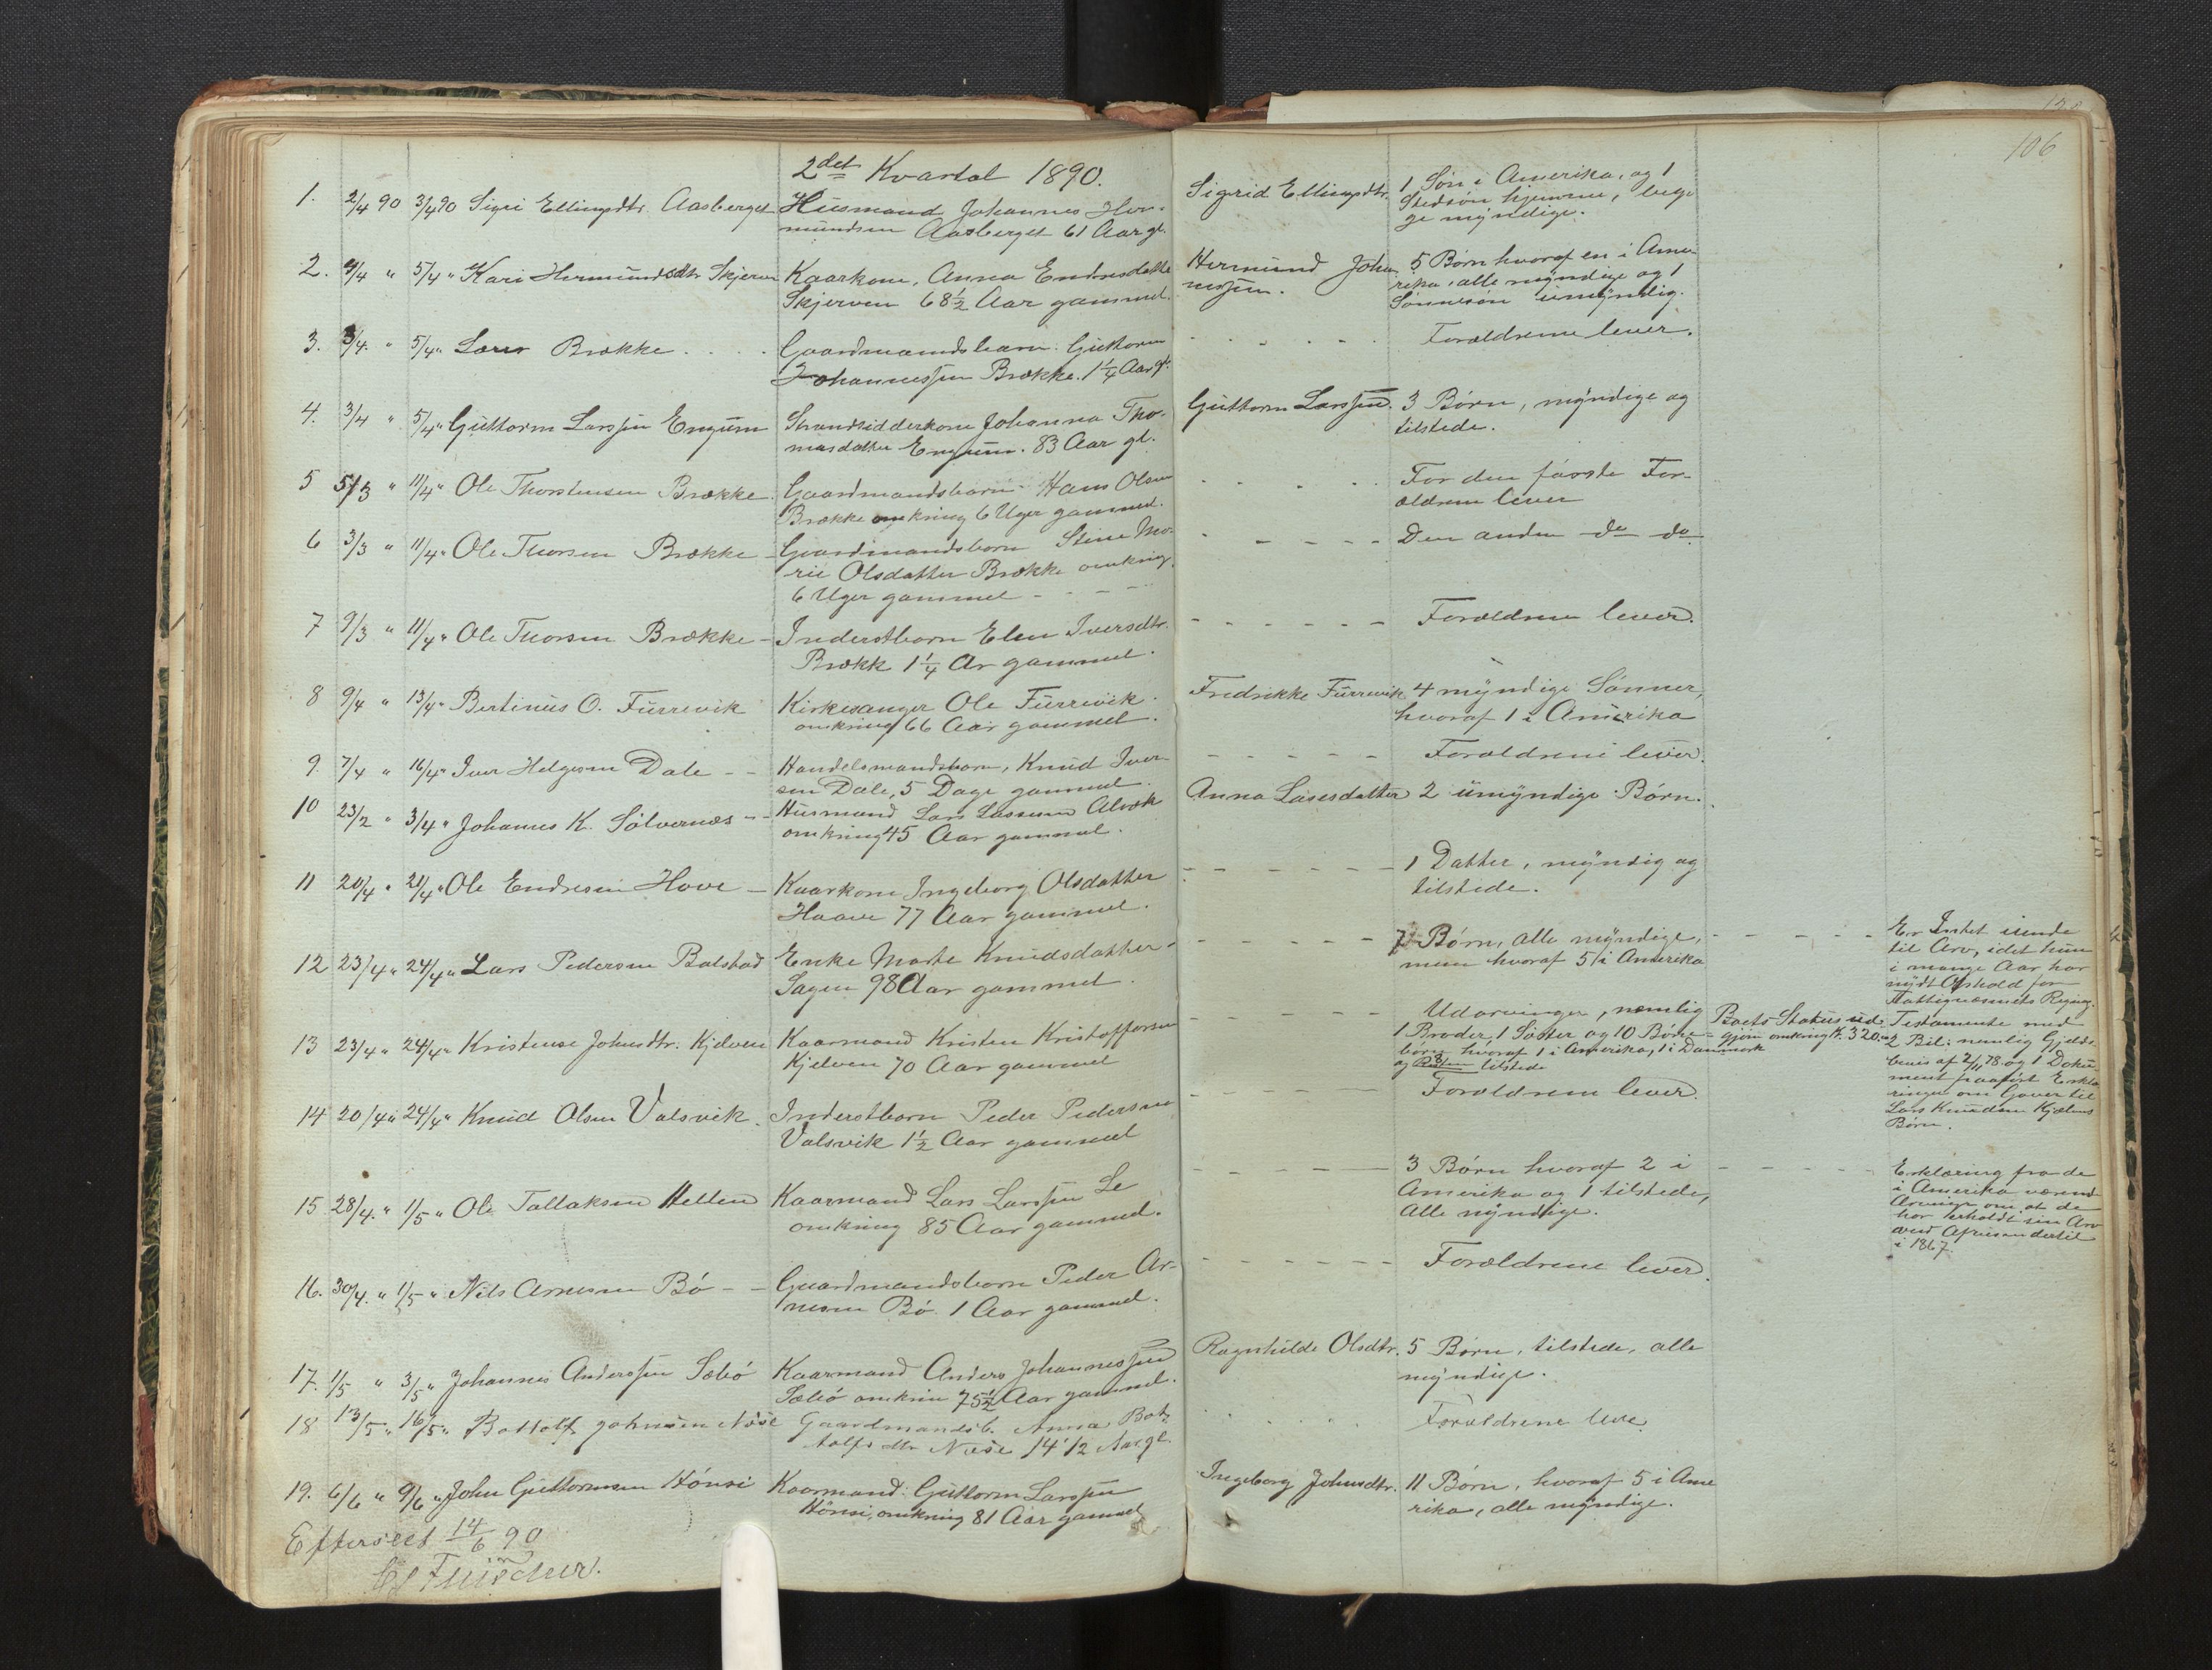 106
2det Kvartal 1890.
1. 2/4 90 3/4 90 Sigri Ellingsdtr. Aasberget Husmand Johannes Her- Sigrid Ellingsdtr. 1 Søn i Amerika, og 1
mundsen Aasberget 61 Aar gl. Stedsøn hjemme, beg-
ge myndige.
2. 4/4 " 5/4 " Kari Hermundsdtr Skjerven Kaarkone, Anna Endresdatter Hermund Johan- 5 Børn hvoraf en i Ame-
Skjerven 68½ Aar gammel. nessen. rika, alle myndige og 1
Sønnesøn umyndig.
3. 3/4. " 5/4 " Lars Brække . . . . Gaardmandsbarn: Guttorm . . . . . . Forældrene lever.
Johannessen Brække. 1¼ Aar gl.
4. 3/4 " 5/4 " Guttorm Larssen Engum Strandsidderkone Johanna Tho- Guttorm Larssen. 3 Børn, myndige og
masdatter Engum. 83 Aar gl. tilstede.
5 5/3 " 11/4 " Ole Thorstensen Brække. Gaardmandsbarn Hans Olsen For den første For-
Brække omkring 6 Uger gammel. ældrene lever
6 3/3 " 11/4 " Ole Thorsen Brække - Gaardmandsbarn Stine Ma- - - - - - Den anden do do
rie Olsdatter Brække omkring
6 Uger gammel - - - -
7 9/3 " 11/4 " Ole Thorsen Brække - Inderstbarn Elen Iversdtr. - - - - - - Forældrene lever.
Brækk 1¼ Ar gammel.
8 9/4 " 13/4 " Bertinus O. Furrevik Kirkesanger Ole Furrevik Fredrikke Furrevik 4 myndige Sønner,
omkring 66 Aar gammel. hvoraf 1 i Amerika
9. 7/4 " 16/4 " Iver Helgesen Dale - - Handelsmandsbarn, Knud Iver- - - - - - Forældrene lever.
sen Dale, 5 Dage gammel.
10 23/2 " 3/4 " Johannes K. Sølvernæs - - Husmand Lars Lassesen Alvæk Anna Lasesdatter 2 umyndige Børn.
omkring 45 Aar gammel.
11 20/4 " 21/4 " Ole Endresen Hove - Kaarkone Ingeborg Olsdatter - - - - - - 1 Datter, myndig og
Haave 77 Aar gammel. tilstede.
12 23/4 " 24/4 " Lars Pedersen Bolstad Enke Marte Knudsdatter - - - - - - 7 Børn, alle myndige, - - - - - Er Intet iende
Sagen 98 Aar gammel. men hvoraf 5 i Amerika til Arv, idet hun
i mange Aar har
nydt Ophold for
Fattigvæsenets Regning.
13 23/4 " 24/4 " Kristense Johnsdtr. Kjelven Kaarmand Kristen Kristoffersen - - - - - Udarvinger, nemlig Boets Status ud- Testamente med
Kjelven 70 Aar gammel 1 Broder, 1 Søster og 10 Børne- gjør omkring K. 320.00 2 Bil: nemlig Gjelds-
børn hvoraf 1 i Amerika, 1 i Danmark bevis af 2/11 78 og 1 Doku-
og Resten tilstede ment paaført Erklæ-
ringer om Gaver til
Lars Knudsen Kjelvens
Børn.
14 20/4 " 24/4 " Knud Olsen Valsvik. Inderstbarn Peder Pedersen - - - - Forældrene lever.
Valsvik 1½ Aar gammel
15 28/4. " 1/5 " Ole Tollaksen Hellen Kaarmand Lars Larssen Le - - - - - 3 Børn hvoraf 2 i - - - - - Erklæring fra de
omkring 85 Aar gammel. Amerika og 1 tilstede, i Amerika værende
Alle myndige. Arvinger om at de
har erholdt sin Arv
ved Afreisen dertil
i 1867.
16. 30/4. " 1/5 " Nils Arnesen Bø - - Gaardmandsbarn Peder Ar- - - - - - - Forældrene lever.
nesen Bø. 1 Aar gammel.
17. 1/5 " 3/5 " Johannes Anderssen Sæbø Kaarmand Anders Johannessen Ragnhilde Olsdtr. 5 Børn, tilstede, alle
Sæbø omkrin 75½ Aar gammel. myndige.
18 13/5 " 16/5 " Bottolf Johnsen Nese Gaardmandsb. Anna Bot- . . . . Forældrene leve.
tolfs dtr Nese 14 1/2 Aar gl.
19. 6/6 " 9/6 " John Guttormsen Hønsi Kaarmand: Guttorm Larssen Ingeborg Johnsdtr. 11 Børn, hvoraf 5 i Ame
Hønsi, omkring 81 Aar gammel rika, alle myndige.
Efterseet 14/6 90